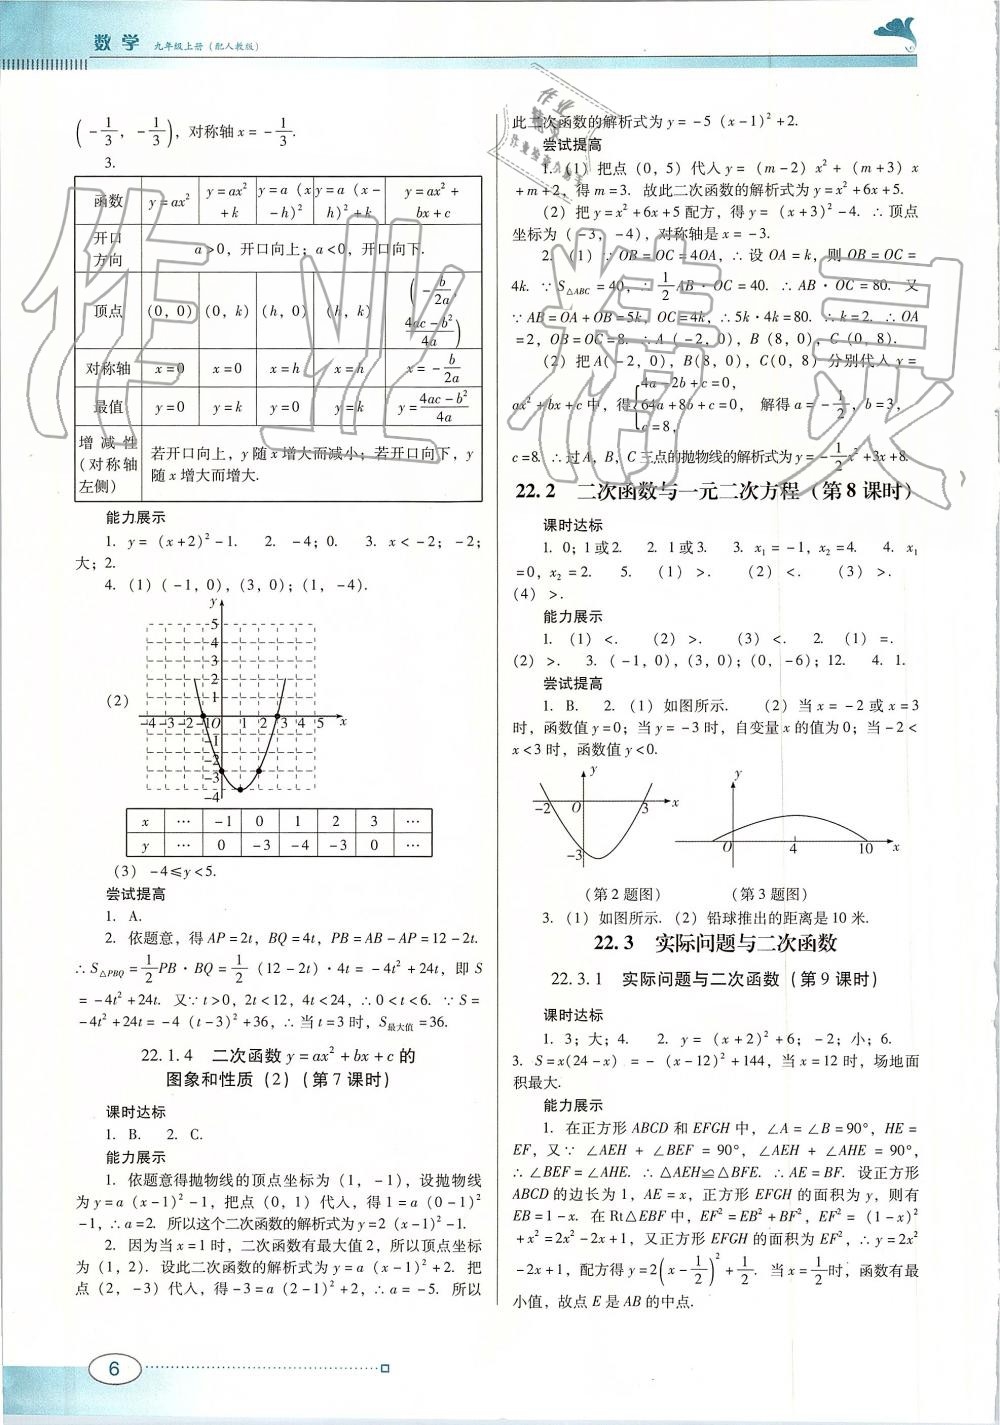 数学 九年级上册（配人教版）
(-1/3, -1/3)，对称轴 x = -1/3.
3.
函数 y=ax² y=ax²+k y=a（x-h）² y=a（x-h）²+k y=ax²+bx+c
开口方向 a>0，开口向上；a<0，开口向下.
顶点 (0，0) (0，k) (h，0) (h，k) (-b/2a, (4ac-b²)/4a)
对称轴 x=0 x=0 x=h x=h x=-b/2a
最值 y=0 y=k y=0 y=k y=(4ac-b²)/4a
增减性（对称轴左侧） 若开口向上，y 随 x 增大而减小；若开口向下，y
随 x 增大而增大.
能力展示
1. y=（x+2）²-1. 2. -4；0. 3. x<-2；-2；
大；2.
4.（1）（-1，0），（3，0）；（1，-4）.
（2）
y
5
4
3
2
1
-4 -3 -2 -1 O 1 2 3 4 5 x
-1
-2
-3
-4
x … -1 0 1 2 3 …
y … 0 -3 -4 -3 0 …
（3） -4≤y<5.
尝试提高
1. A.
2. 依题意，得 AP=2t，BQ=4t，PB=AB-AP=12-2t.
∴S△PBQ=1/2 PB·BQ=1/2（12-2t）·4t=-4t²+24t，即 S
=-4t²+24t. 又∵t>0，2t<12，4t<24，∴0<t<6. ∵S=
-4t²+24t=-4（t-3）²+36，∴当 t=3 时，S最大值=36.
22.1.4 二次函数 y=ax²+bx+c 的
图象和性质（2）（第 7 课时）
课时达标
1. B. 2. C.
能力展示
1. 依题意得抛物线的顶点坐标为（1，-1），设抛物线
为 y=a（x-1）²-1，把点（0，1）代人，得 1=a（0-1）²
-1，∴a=2. 所以这个二次函数的解析式为 y=2（x-1）²-1.
2. 因为当 x=1 时，二次函数有最大值 2，所以顶点坐标
为（1，2）. 设此二次函数的解析式为 y=a（x-1）²+2. 把
点（2，-3）代人，得 -3=a（2-1）²+2，∴a=-5. 所以
6
此二次函数的解析式为 y=-5（x-1）²+2.
尝试提高
1.（1）把点（0，5）代人 y=（m-2）x²+（m+3）x
+m+2，得 m=3. 故此二次函数的解析式为 y=x²+6x+5.
（2）把 y=x²+6x+5 配方，得 y=（x+3）²-4. ∴顶点
坐标为（-3，-4），对称轴是 x=-3.
2.（1）∵OB=OC=4OA，∴设 OA=k，则 OB=OC=
4k. ∵S△ABC=40，∴1/2 AB·OC=40. ∴AB·OC=80. 又
∵AB=OA+OB=5k，OC=4k，∴5k·4k=80. ∴k=2. ∴OA
=2，OB=OC=8. ∴A（-2，0），B（8，0），C（0，8）.
（2）把 A（-2，0），B（8，0），C（0，8）分别代人 y=
ax²+bx+c 中，得{4a-2b+c=0，64a+8b+c=0，c=8， 解得 a=-1/2，b=3，
c=8. ∴过 A，B，C 三点的抛物线的解析式为 y=-1/2x²+3x+8.
22.2 二次函数与一元二次方程（第 8 课时）
课时达标
1. 0；1 或 2. 2. 1 或 3. 3. x₁=-1，x₂=4. 4. x₁
=0，x₂=2. 5.（1）>. （2）<. （3）>.
（4）>.
能力展示
1.（1）<. （2）>. （3）<. 2.（1）=.
（2）>. 3.（-1，0），（3，0）；（0，-6）；12. 4. 1.
尝试提高
1. B. 2.（1）如图所示. （2）当 x=-2 或 x=3
时，函数值 y=0；当 y=-3 时，自变量 x 的值为 0；当 -2<
x<3 时，函数值 y<0.
y
-2 O 3 x
-3
（第 2 题图）
y
O 4 10 x
（第 3 题图）
3.（1）如图所示.（2）铅球推出的距离是 10 米.
22.3 实际问题与二次函数
22.3.1 实际问题与二次函数（第 9 课时）
课时达标
1. 3；大；4. 2. y=（x+2）²+6；-2；小；6.
3. S=x(24-x)=-（x-12）²+144，当 x=12 时，场地面
积最大.
能力展示
1. 在正方形 ABCD 和 EFGH 中，∠A=∠B=90°，HE=
EF，又∵∠AEH+∠BEF=90°，∠AEH+∠AHE=90°，
∴∠BEF=∠AHE. ∴△AEH≌△BFE. ∴AE=BF. 设正方形
ABCD 的边长为 1，AE=x，正方形 EFGH 的面积为 y，则有
EB=1-x. 在 Rt△EBF 中，EF²=EB²+BF²，EF²=（1-x）²
+x²=2x²-2x+1，又正方形 EFGH 的面积为 EF²，∴y=2x²
-2x+1，配方得 y=2(x-1/2)²+1/2. 当 x=1/2 时，函数有最
小值，故点 E 是 AB 的中点.
作业精灵